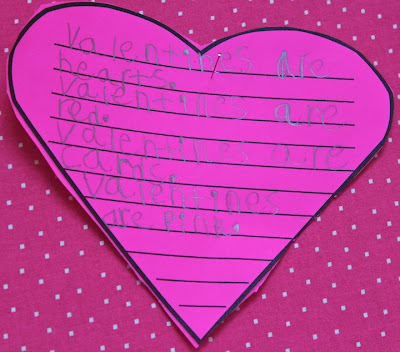 Valentines are
hearts.
Valentines are
red.
Valentines are
cams.
Valentines
are Pink.